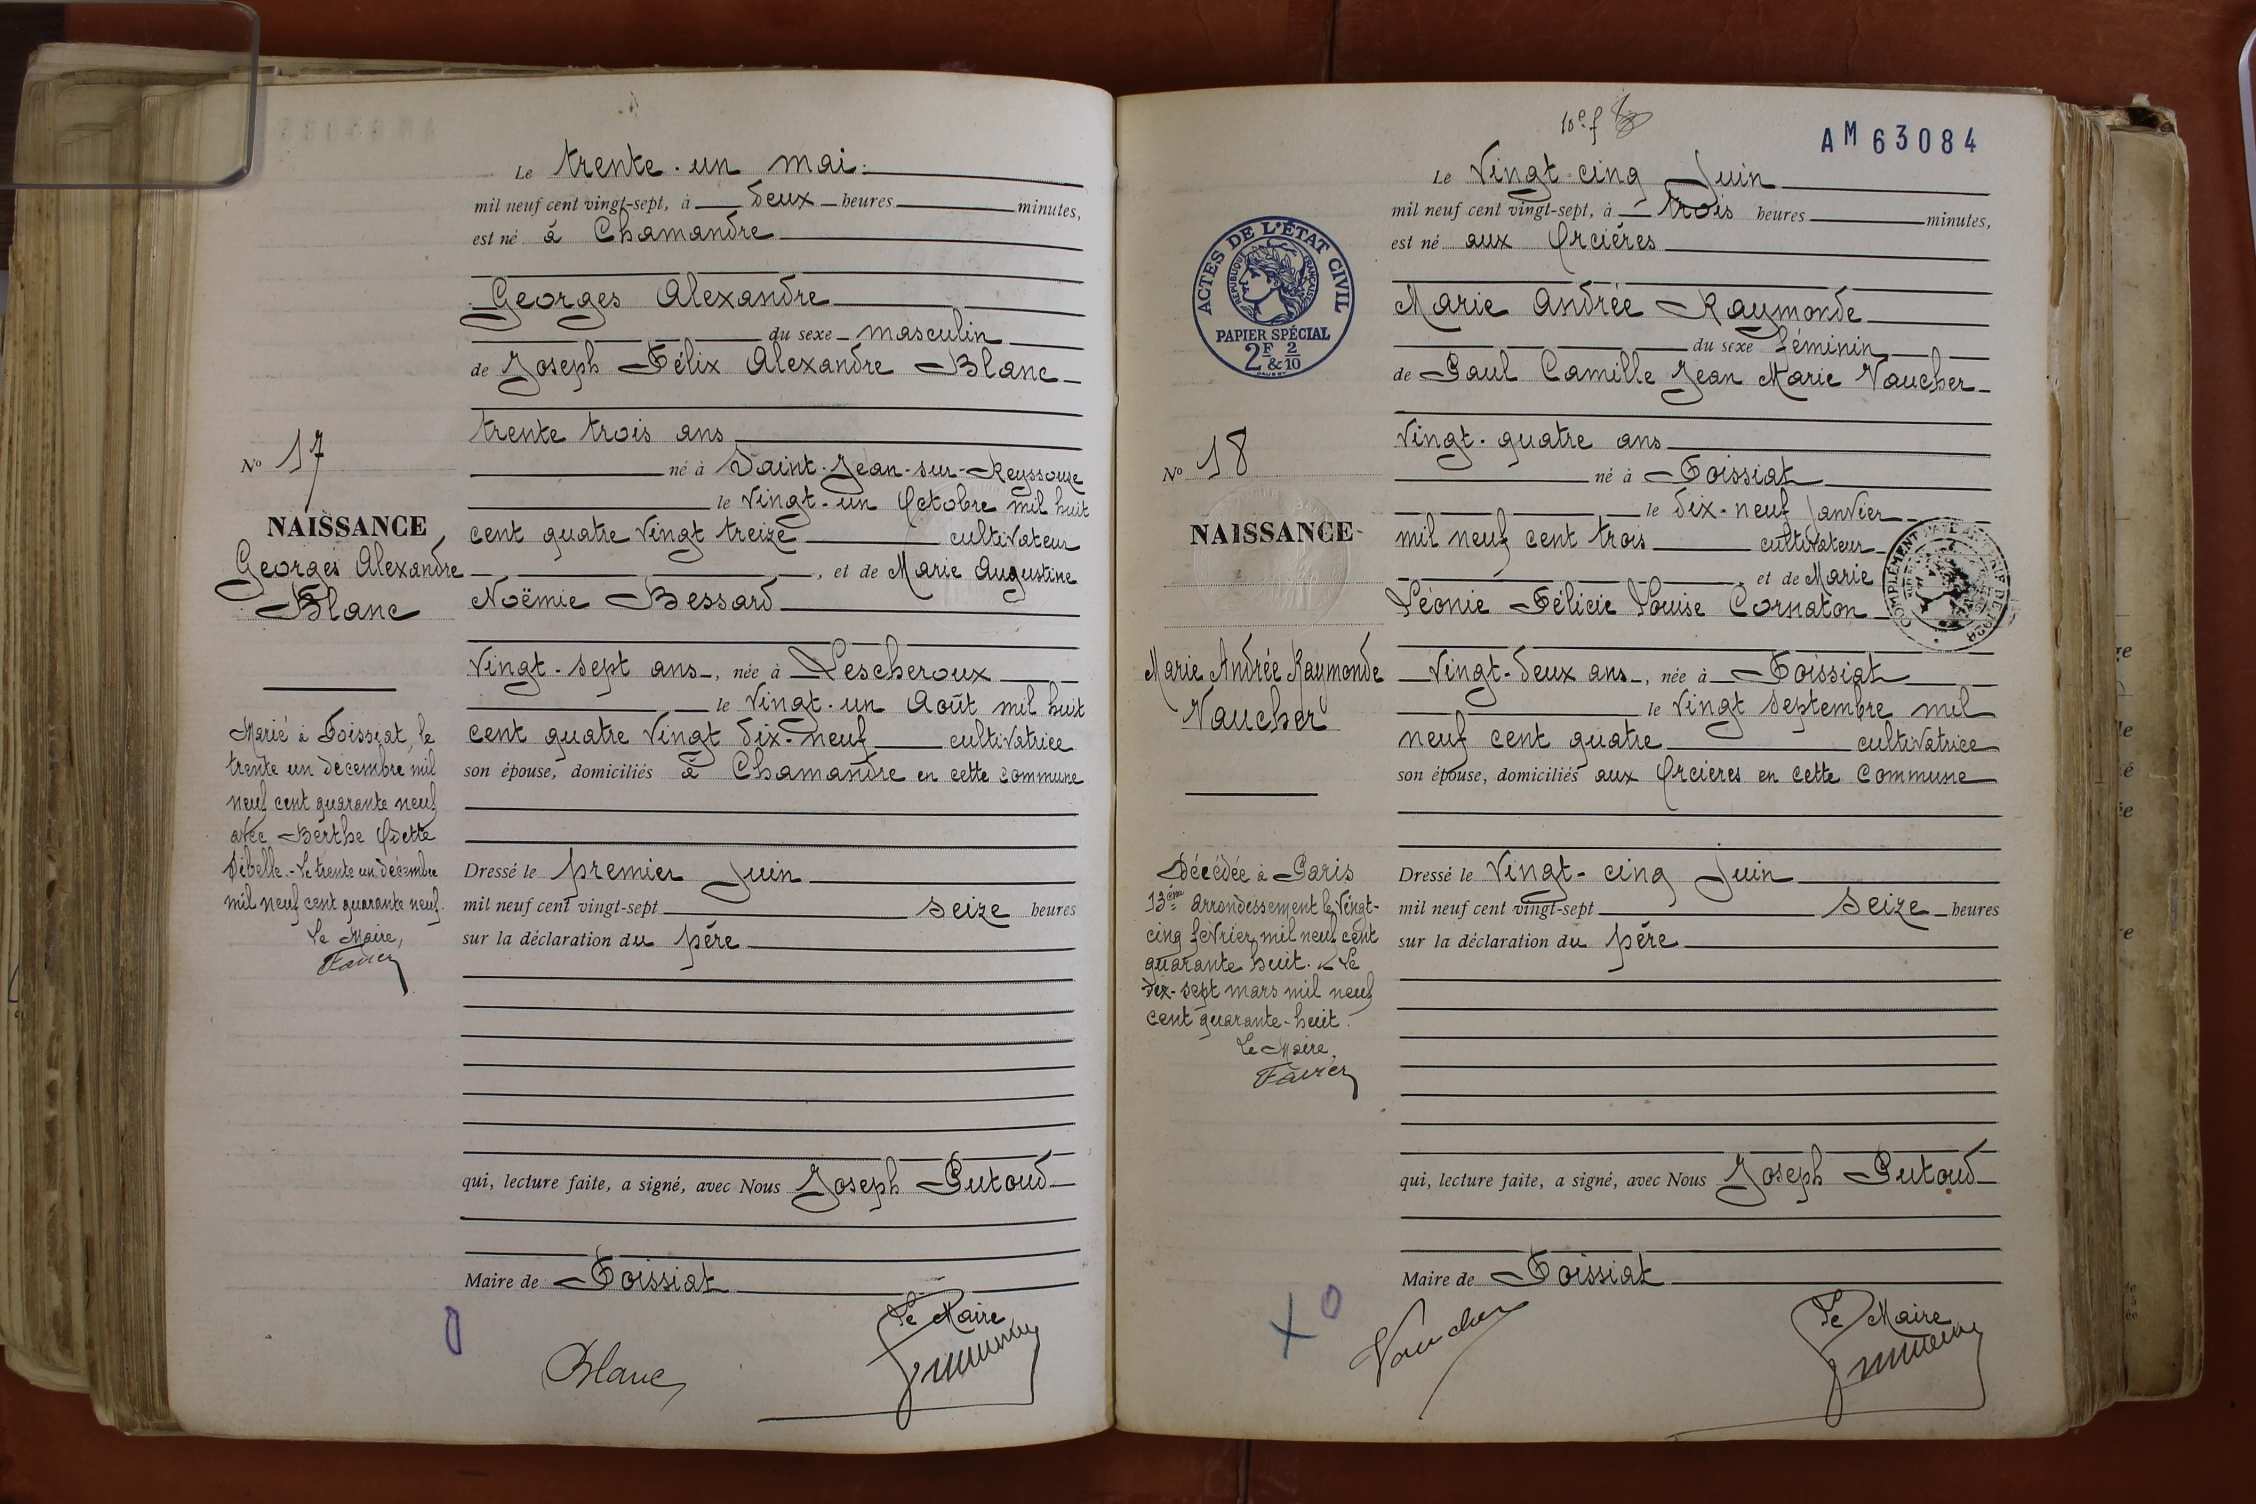 Le trente-un mai
mil neuf cent vingt-sept, à deux heures minutes,
est né à Chamandre
Georges Alexandre
du sexe masculin
de Joseph Félix Alexandre Blanc
trente trois ans
né à Saint-Jean-sur-Reyssouze
le vingt-un Octobre mil huit
cent quatre vingt treize cultivateur
, et de Marie Augustine
Noëmie Bessard
vingt-sept ans, née à Lescheroux
le vingt-un Août mil huit
cent quatre vingt dix-neuf cultivatrice
son épouse, domiciliés à Chamandre en cette commune
Dressé le premier Juin
mil neuf cent vingt-sept seize heures
sur la déclaration du père
qui, lecture faite, a signé, avec Nous Joseph Putoud
Maire de Foissiat
Le Maire
Blanc
No 17
NAISSANCE
Georges Alexandre
Blanc
Marié à Foissiat, le
trente un décembre mil
neuf cent quarante neuf
avec Berthe Odette
Débelle.- Le trente un décembre
mil neuf cent quarante neuf.
Le Maire,
Favier
10e f
AM63084
Le Vingt-cinq Juin
mil neuf cent vingt-sept, à trois heures minutes,
est né aux Orcières
Marie Andrée Raymonde
du sexe féminin
de Paul Camille Jean Marie Vaucher
vingt-quatre ans
né à Foissiat
le dix-neuf Janvier
mil neuf cent trois cultivateur
, et de Marie
Léonie Félicie Louise Cornaton
vingt-deux ans, née à Foissiat
le vingt Septembre mil
neuf cent quatre cultivatrice
son épouse, domiciliés aux Orcières en cette commune
Dressé le vingt-cinq Juin
mil neuf cent vingt-sept seize heures
sur la déclaration du père
qui, lecture faite, a signé, avec Nous Joseph Putoud
Maire de Foissiat
Le Maire
Vaucher
ACTES DE L'ÉTAT CIVIL
RÉPUBLIQUE FRANÇAISE
PAPIER SPÉCIAL
2F & 2/10
No 18
NAISSANCE
Marie Andrée Raymonde
Vaucher
Décédée à Paris
13ème arrondissement le vingt-
cinq février mil neuf cent
quarante huit. - Le
dix-sept mars mil neuf
cent quarante-huit.
Le Maire,
Favier